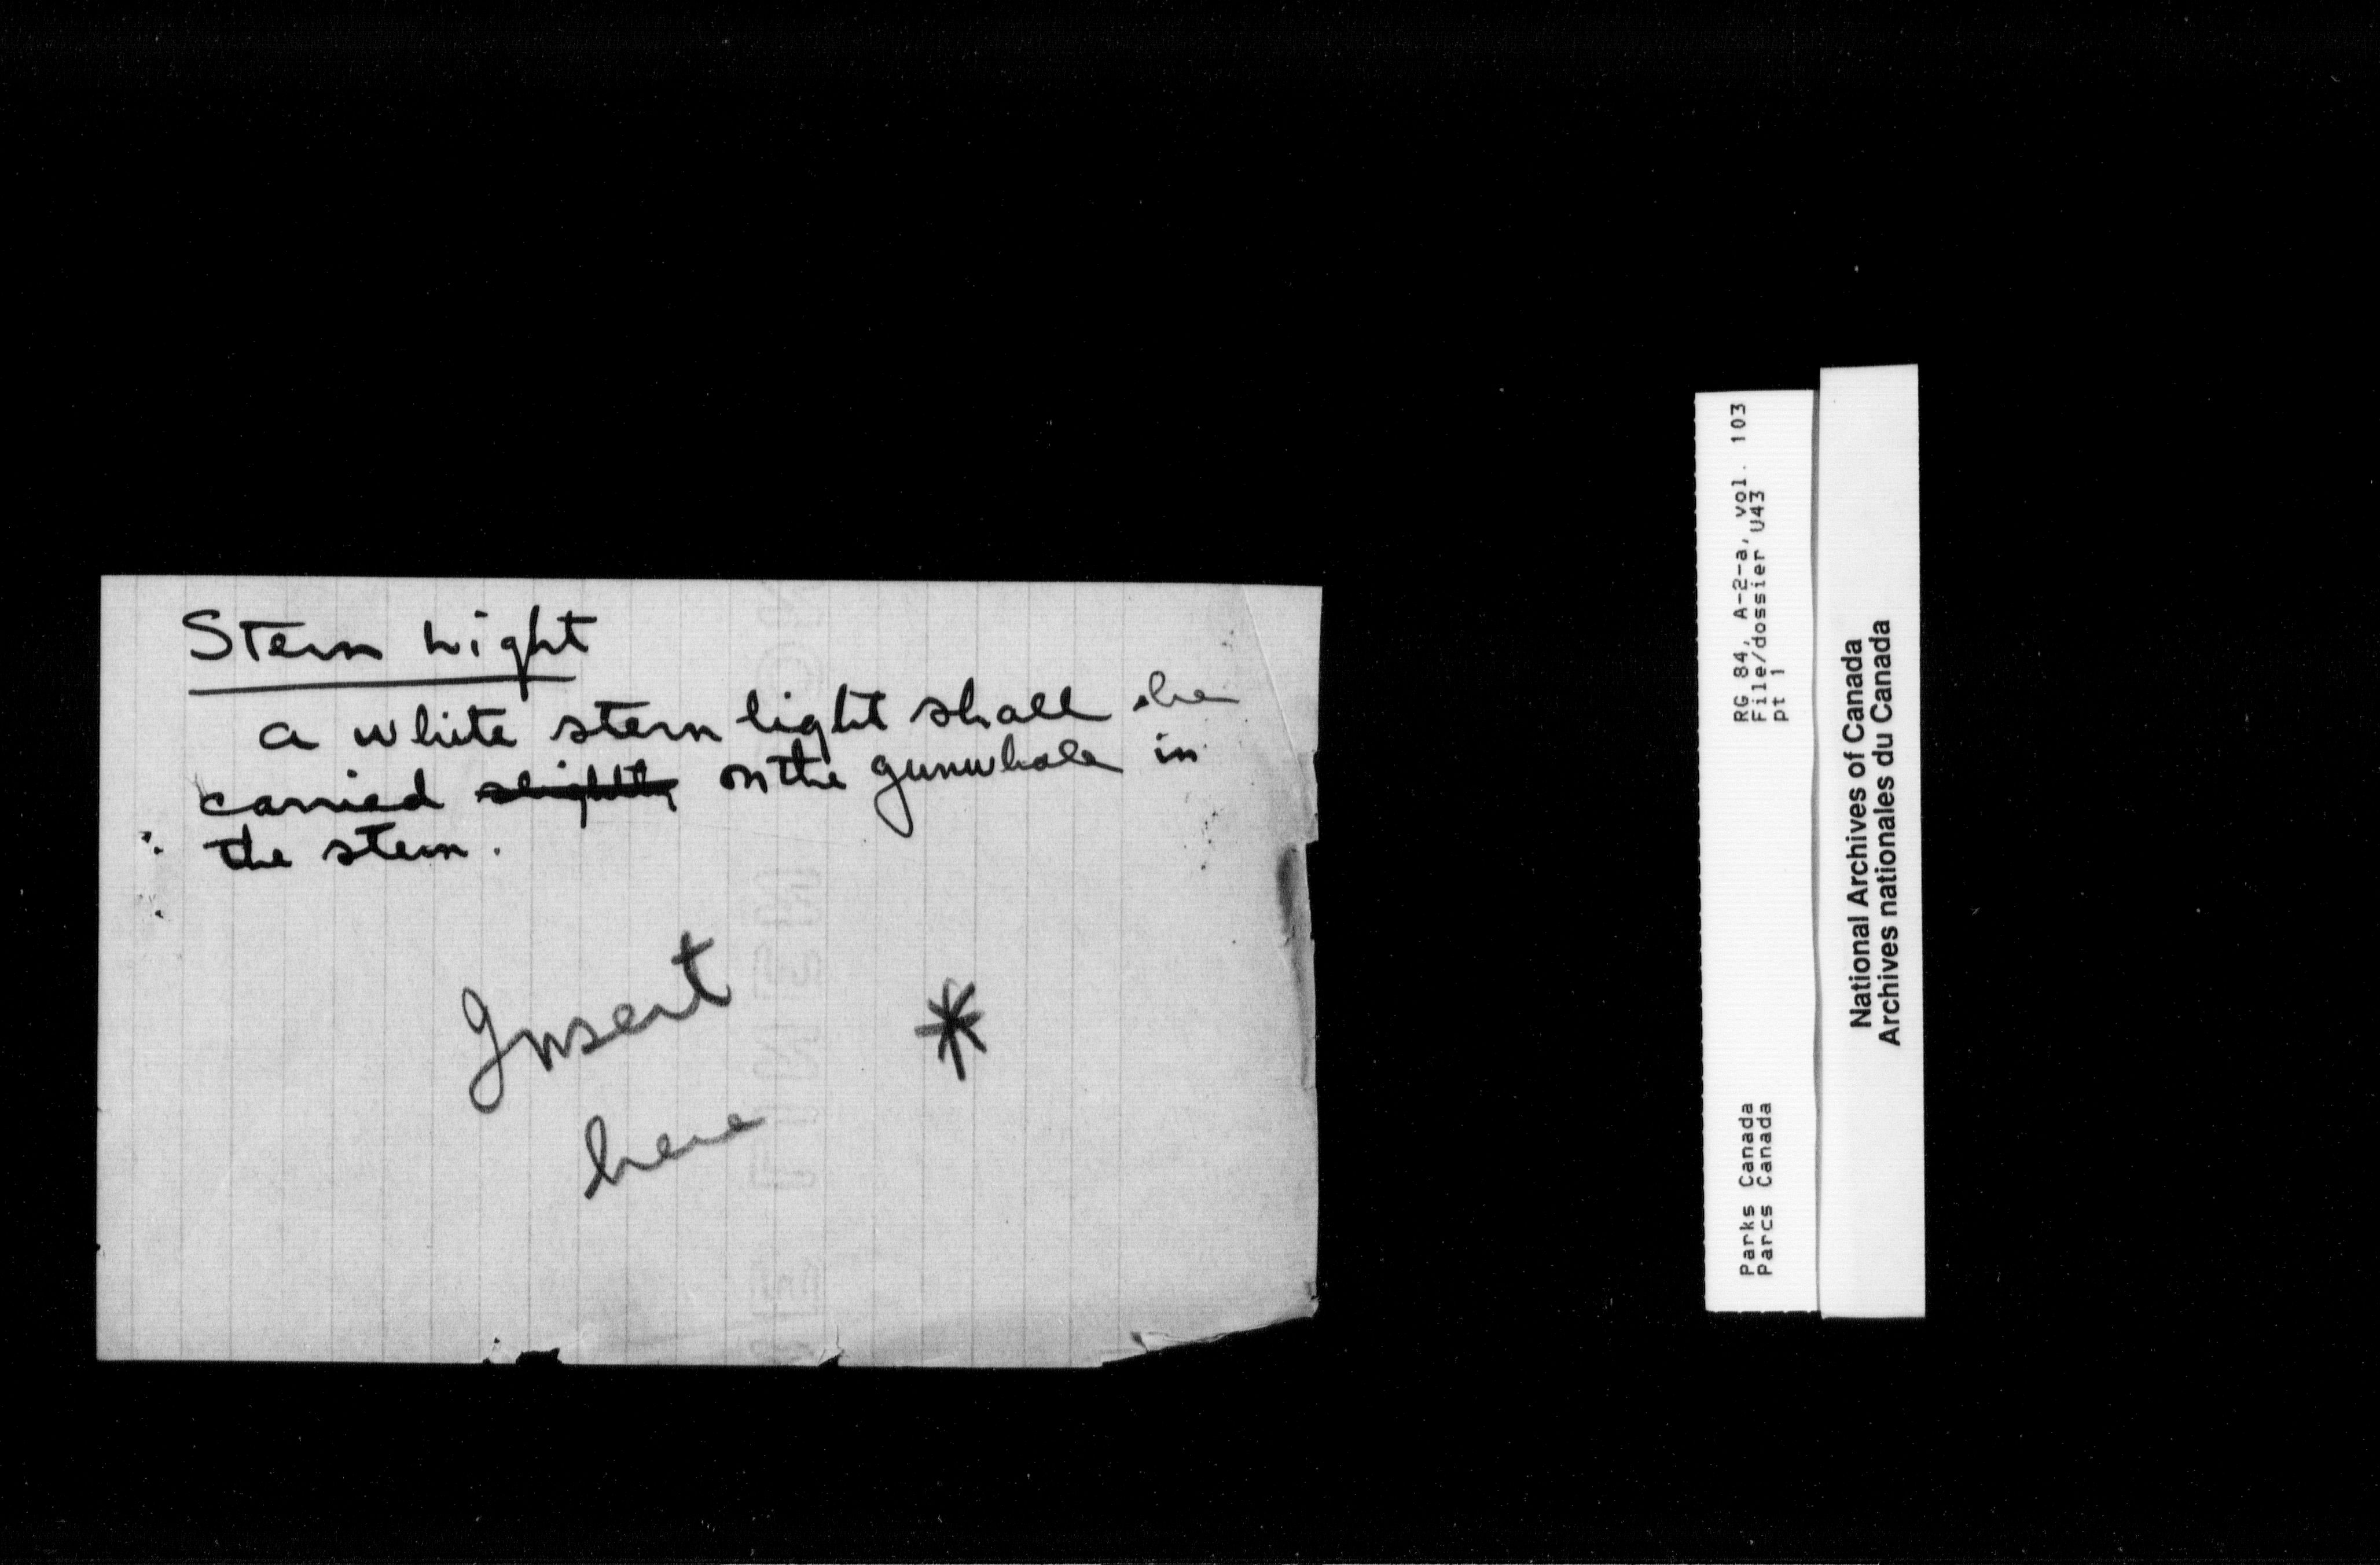 Stern Light
a white stern light shall be
carried slightly on the gunwhale in
the stern.
Insert
here
*
RG 84, A-2-a, vol. 103
File/dossier U43
pt 1
Parks Canada
Parcs Canada
National Archives of Canada
Archives nationales du Canada